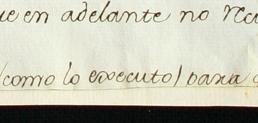 ue en adelante no
/como lo executo/ para